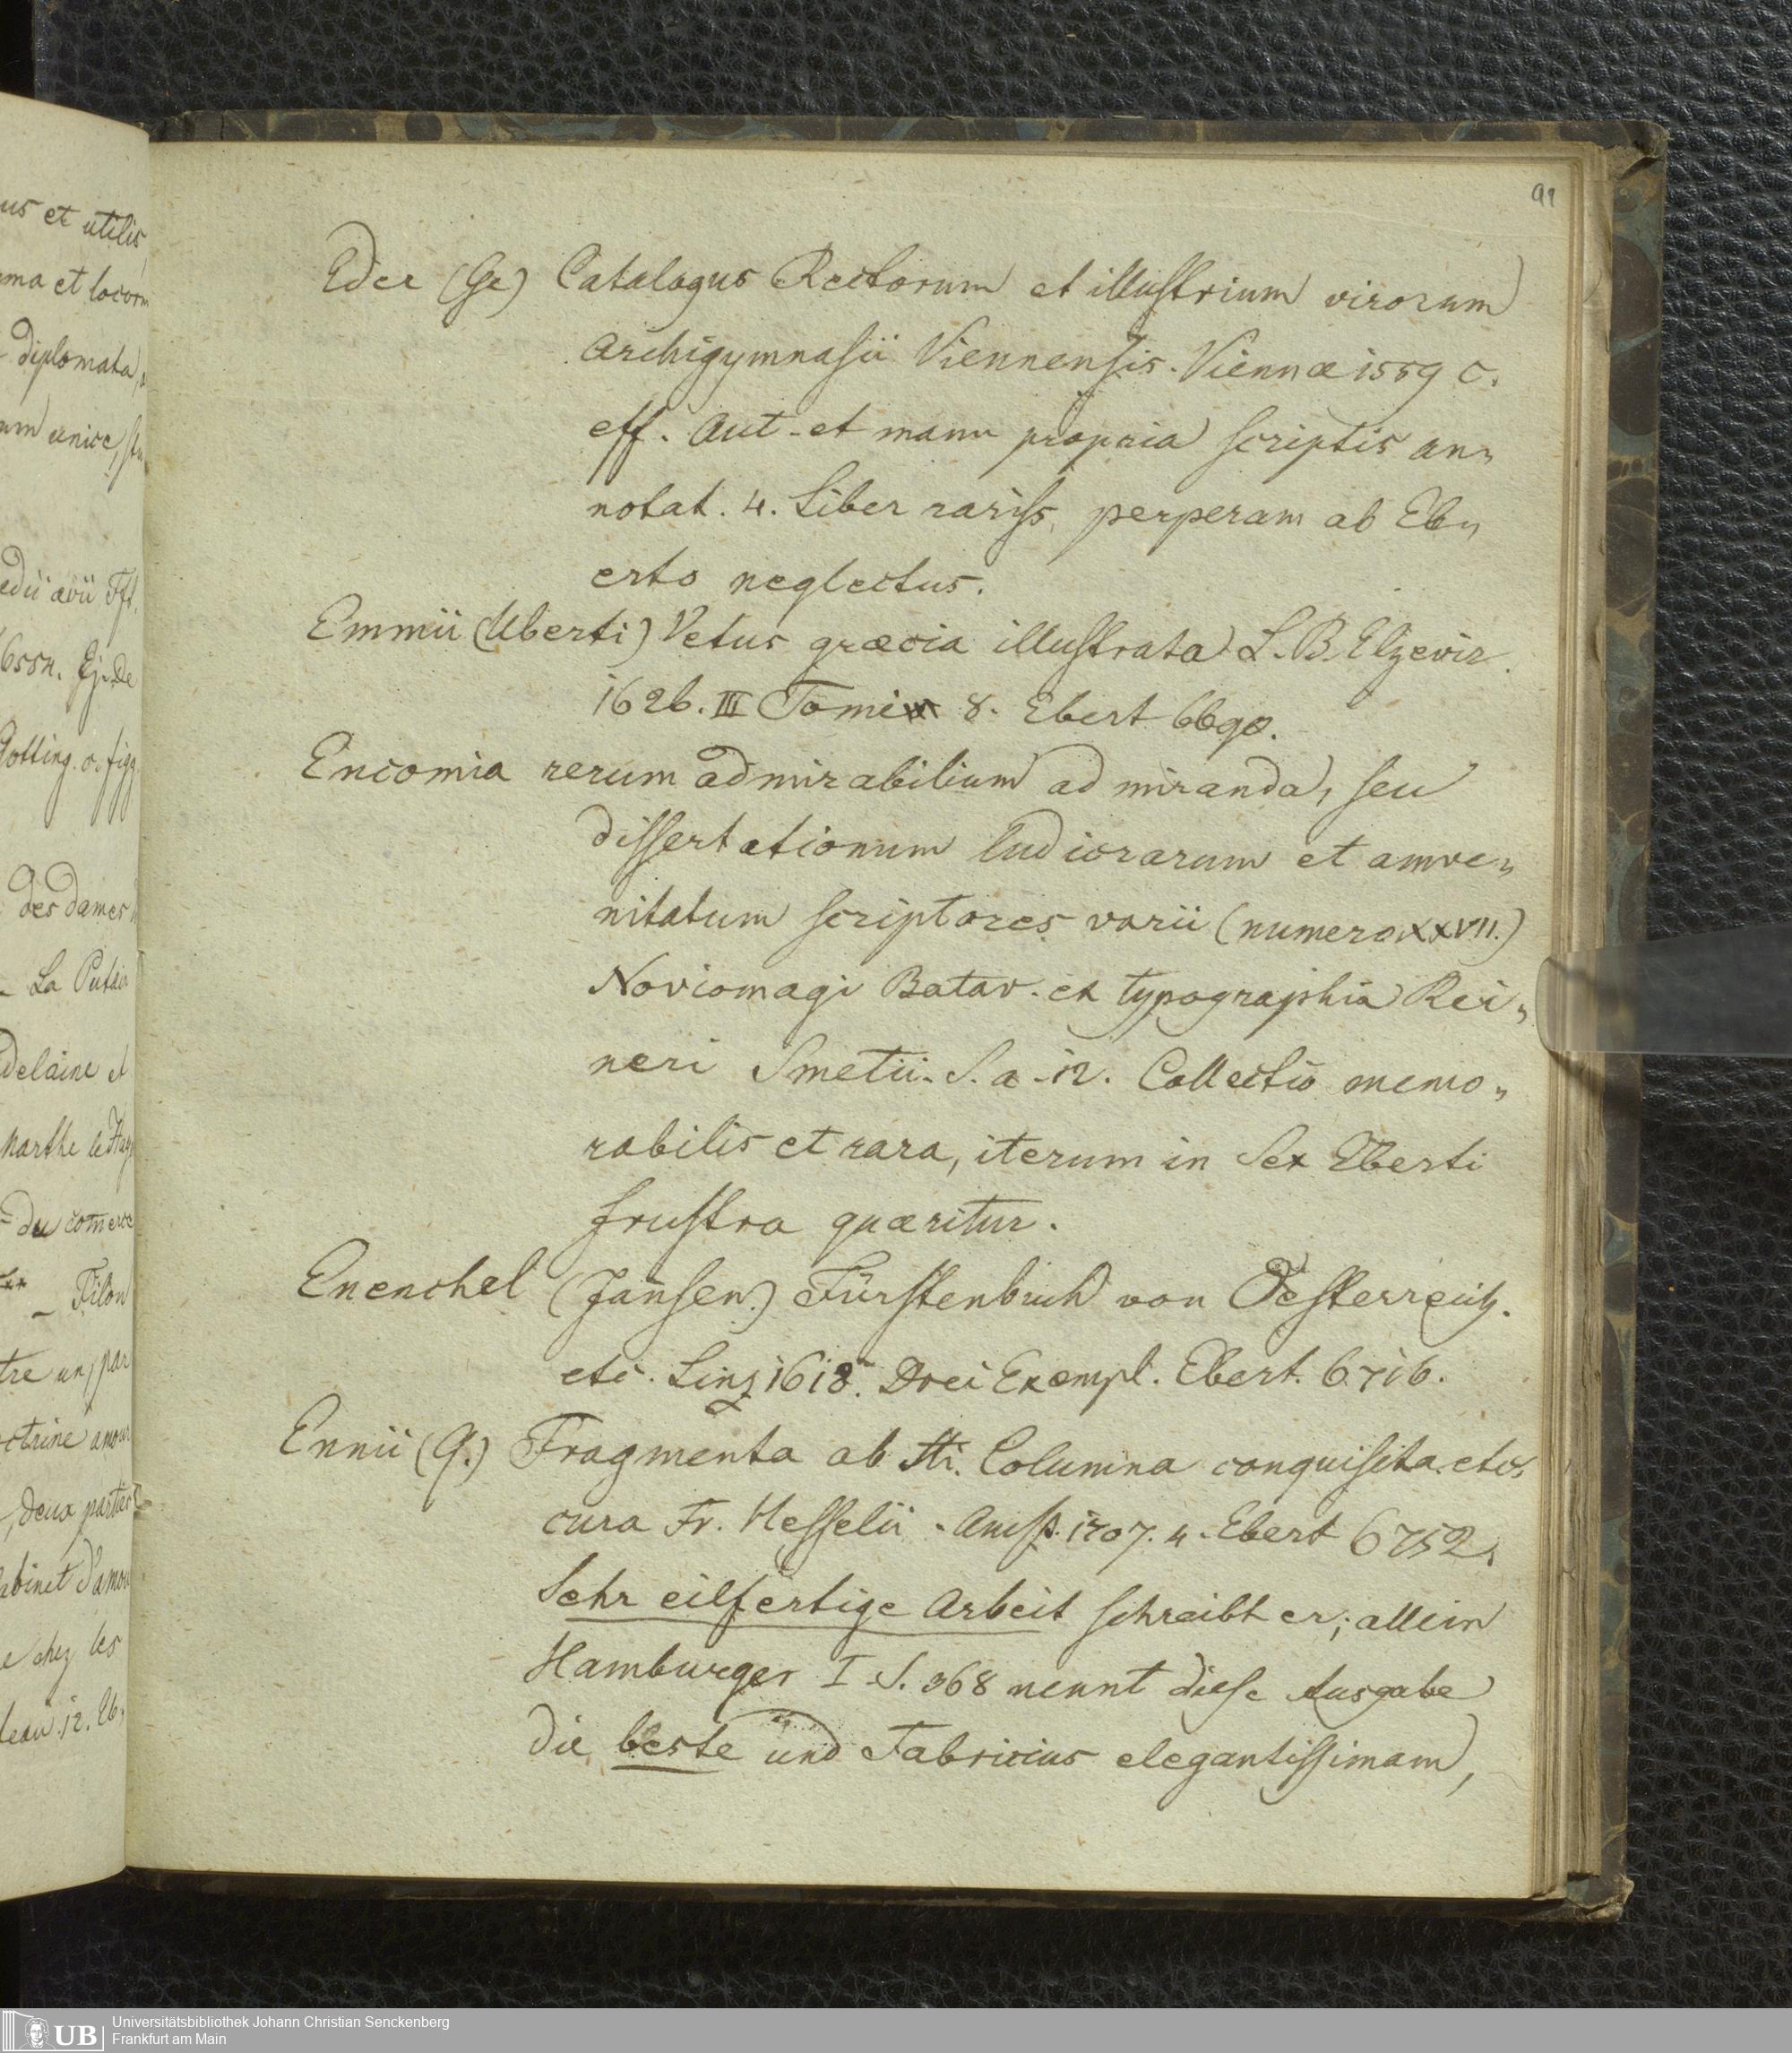 us et utilis
ma et locoru
diplomata,
um unice, stu
edii ævii Fft.
1655 4. Ej. De
Gotting. c. figg
des dames
La Putain
delaine et
Marthe le Hay
du comerce
*** _ Filon
tre un, par
ctrine amour
, deux parties
abinet d'amou
e chez les
leau. 12. Eb.
91
Eder (Ge) Catalogus Rectorum et illustrium virorum
Archigymnasii Viennensis. Viennæ 1559 c.
eff. Aut. et manu propria scriptis an„
notat. 4. Liber rariss. perperam ab Eb„
erto neglectus.
Emmii (Uberti) Vetus græcia illustrata L. B. Elzevir.
1626. III Tomi 8. Ebert 6690.
Encomia rerum admirabilium admiranda, seu
dissertationum ludicrarum et amoe„
nitatum scriptores varii (numero XXVII.)
Noviomagi Batav. ex typographia Rei„
neri Smetii. S. a. 12. Collectio memo„
rabilis et rara, iterum in Lex Eberti
frustra quæritur.
Enenchel (Jansen) Fürstenbuch von Oesterreich.
etc. Linz 1618. Drei Exempl. Ebert. 6716.
Ennii (Q.) Fragmenta ab Hi. Columna conquisita etc.
cura Fr. Hesselii. Amst. 1707. 4. Ebert 6752.
Sehr eilfertige Arbeit schreibt er; allein
Hamburger I. S. 368 nennt diese Ausgabe
die beste und Fabricius elegantissimam,
UB
Universitätsbibliothek Johann Christian Senckenberg
Frankfurt am Main